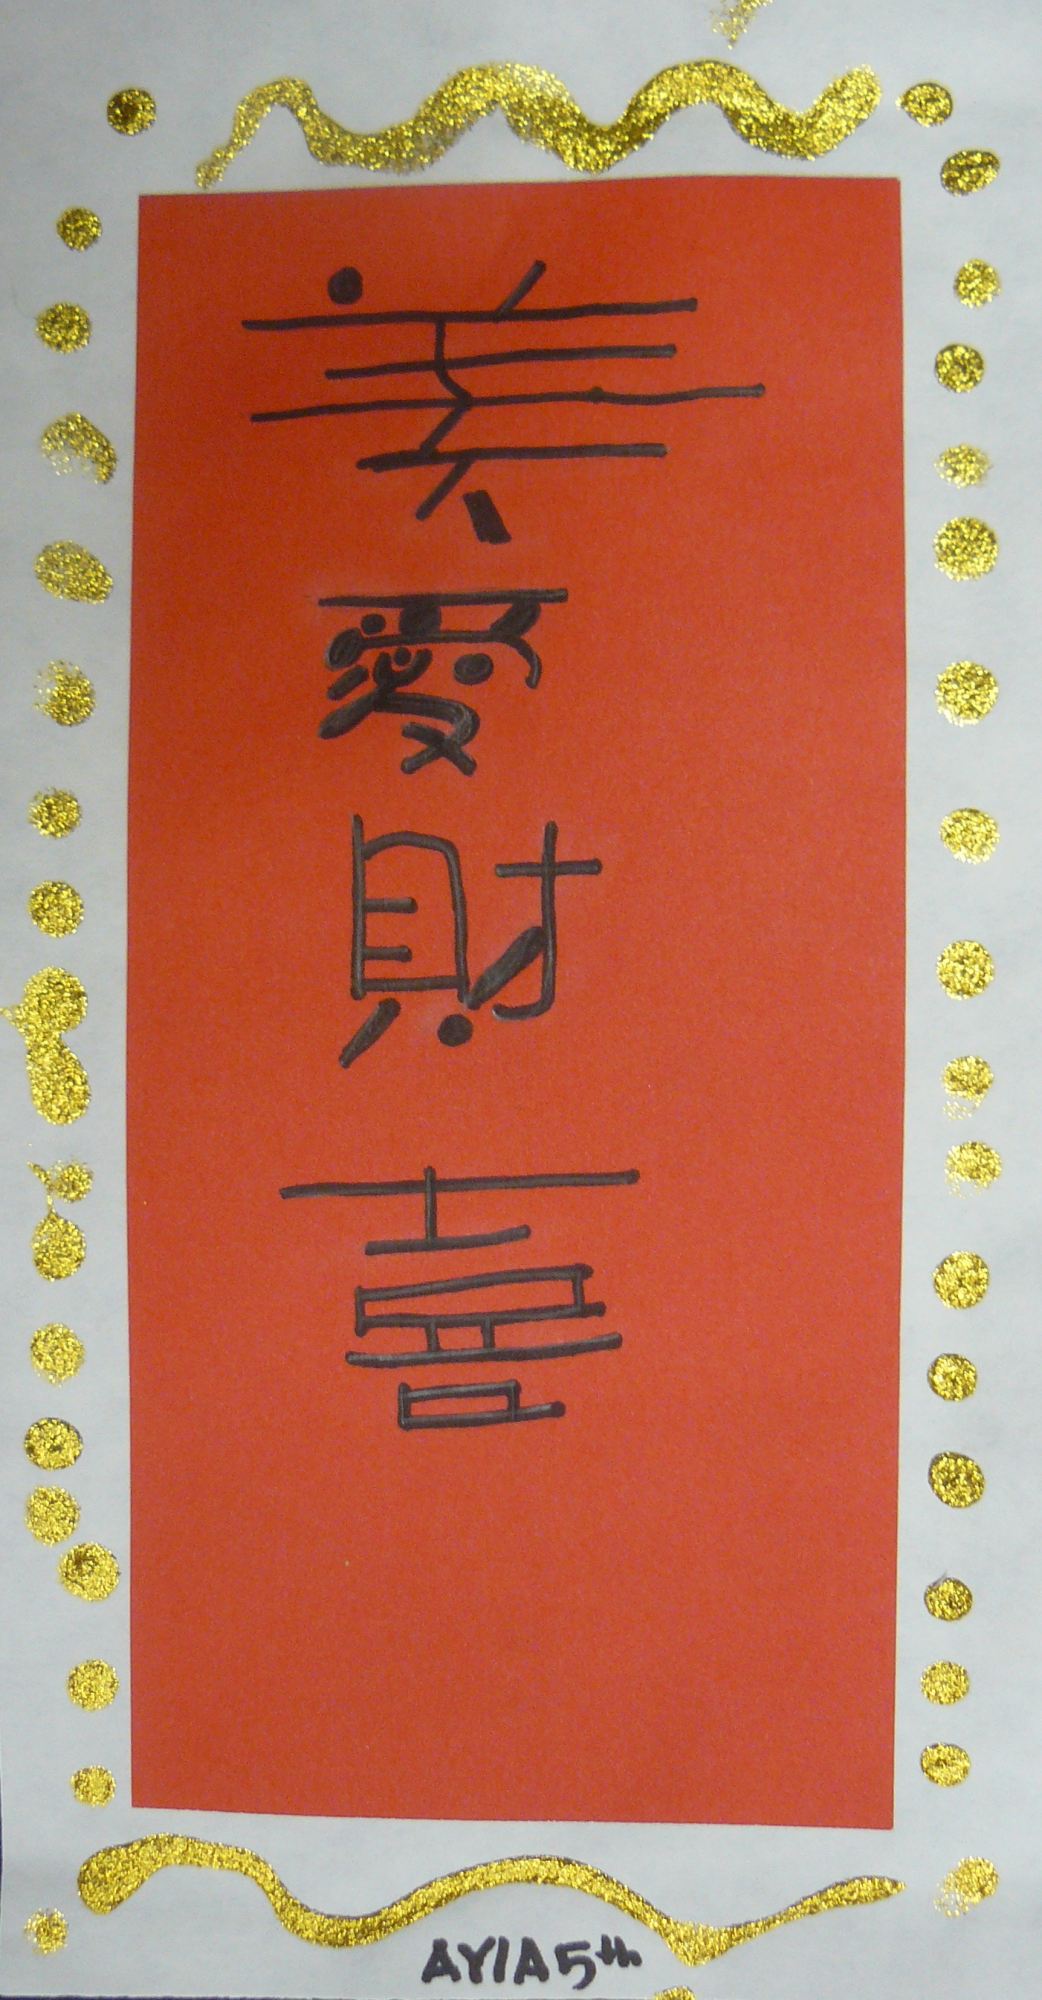 美
愛
財
喜
AYIA 5th